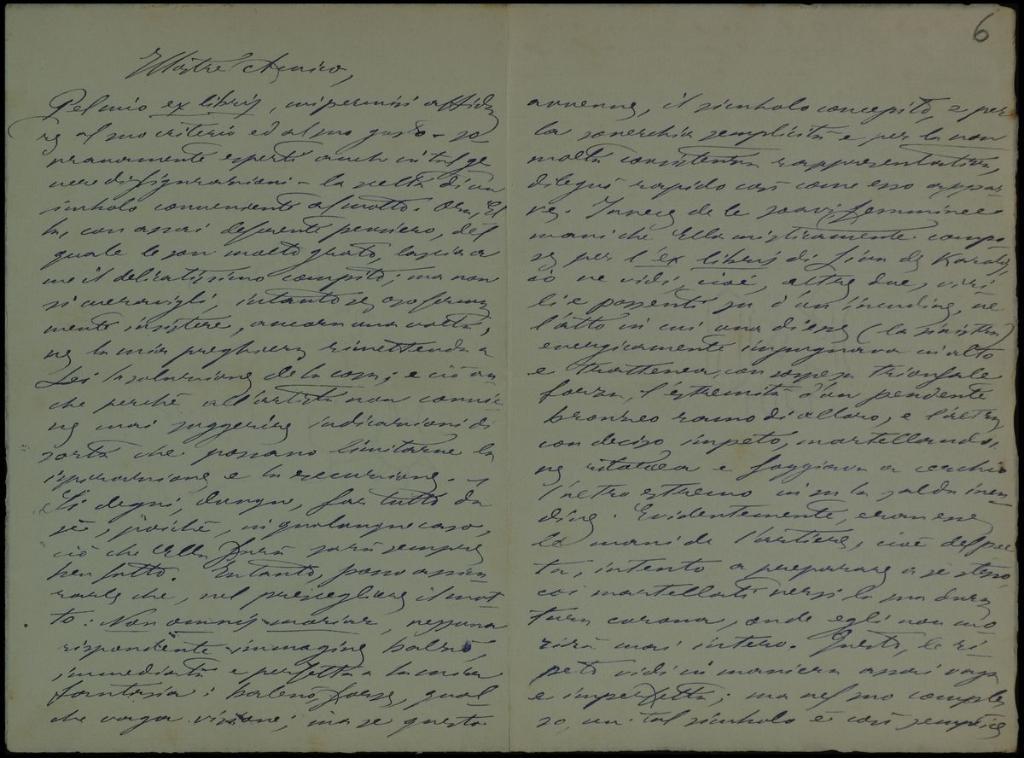 6
Illustre Amico,
Pel mio ex libris, mi permisi affida
re al suo criterio ed al suo gusto – so
vranamente esperti anche in tal ge
nere di figurazioni – la scelta di un
simbolo conveniente al motto. Ora, El
la, con assai deferente pensiero, del
quale le son molto grato, lascia a
me il delicatissimo compito; ma non
si meravigli, intanto se oso ferma
mente insistere, ancora una volta,
ne la mia preghiera rimettendo a
Lei la soluzione de la cosa; e ciò an
che perché all'artista non convie
ne mai suggerire indicazioni di
sorta che possano limitarne la
ispirazione e la esecuzione.
Si degni, dunque, far tutto da
sé, poiché, in qualunque caso,
ciò che Ella farà sarà sempre
ben fatto. Intanto, posso assicu
rarle che, nel prescegliere il mot
to: Non omnis moriar, nessuna
rispondente immagine balzò,
immediata e perfetta a la mia
fantasia: balenò, forse, qual
che vaga visione; ma se questa
avvenne, il simbolo concepito, e per
la soverchia semplicità e per la non
molta consistenza rappresentativa,
dileguò rapido così come esso appar
ve. Invece de le soavi femminee
mani che Ella misticamente compo
se per l'ex libris di Siva de Karoly,
io ne vidi, cioè, altre due, viri
li e possenti, su d'un'incudine, ne
l'atto in cui una di esse (la sinistra)
energicamente impugnava in alto
e tratteneva, con sospesa trionfale
forza, l'estremità d'un pendente
bronzeo ramo di alloro, e l'altra
con deciso impeto, martellando,
ne ritorcea e foggiava a cerchio
l'altro estremo in su la salda incu
dine. Evidentemente, eran esse
le mani de l'artiere, cioè del poe
ta, intento a preparare a sé stesso
coi martellati versi la sua dura
tura corona, onde egli non mo
rirà mai intero. Questo, le ri
peto vidi in maniera assai vaga
e imperfetta; ma nel suo comples
so, un tal simbolo è così semplice